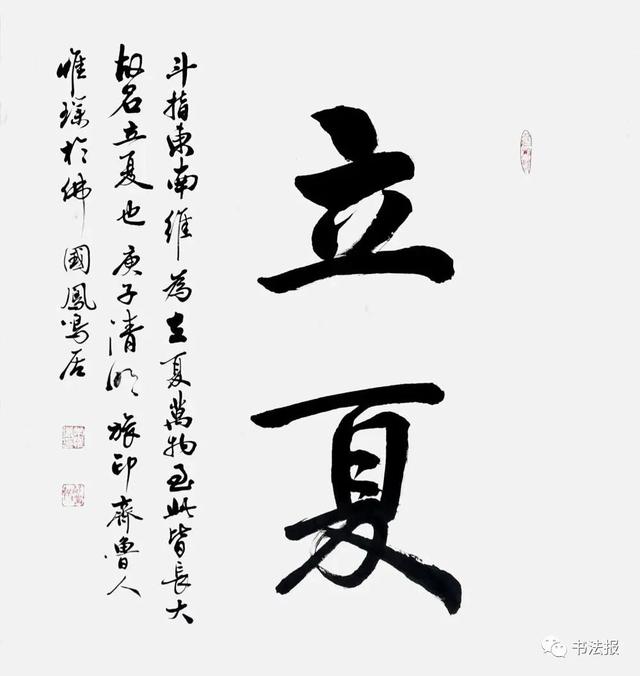 立夏
斗指東南維為立夏萬物至此皆長大
故名立夏也庚子清明旅印齊魯人
惟瑹於佛國鳳鳴居
书法报